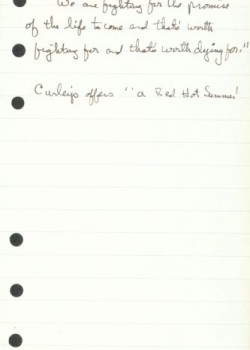 "We are fighting for the promise
of the life to come and that's worth
fighting for and that's worth dying for."
Curley's offers "a Red Hot Summer!